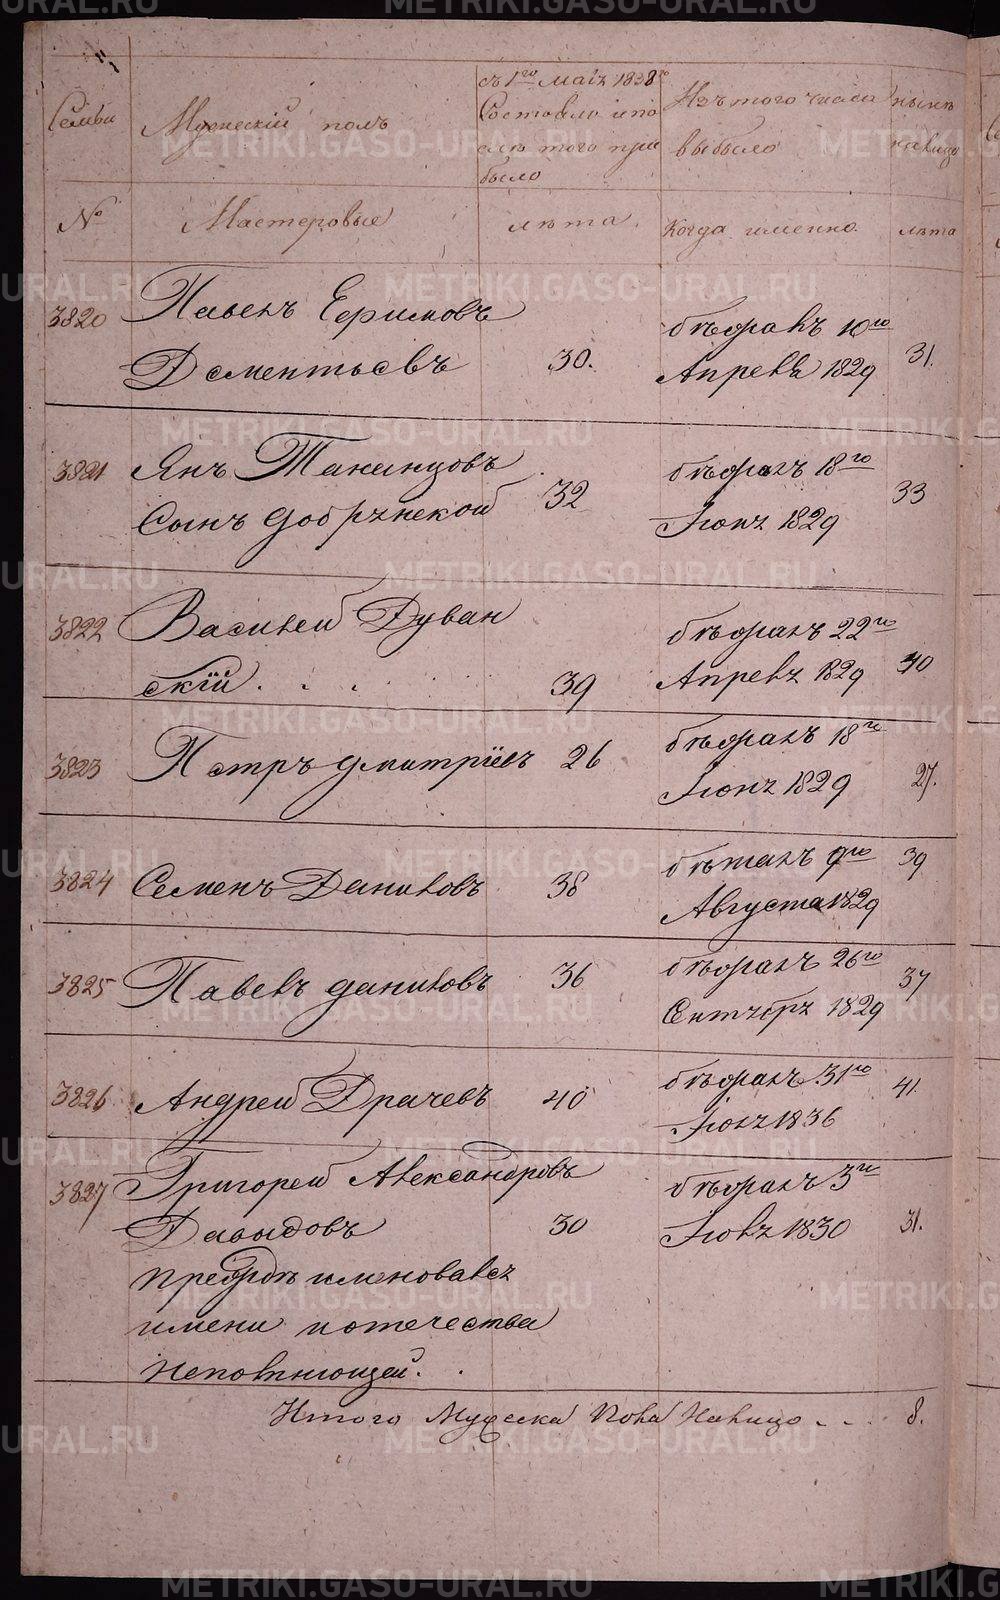 Семьи
Мужескій полъ
съ 1го Маія 1838го
Состояло и по
слѣ того при
было
Изъ того числа
выбыло
нынѣ
налицо
№
Мастеровые
лѣта
Когда именно
лѣта
3820
Павелъ Ефимовъ
Дементьевъ
30.
бѣжалъ 10го
Апреля 1829
31.
3821
Янъ
Сынъ Добрянской
32
бѣжалъ 18го
Іюня 1829
33
3822
Василей Дуван
скій . . .
39
бѣжалъ 22го
Апреля 1829
40
3823
Петръ Дмитріевъ
26
бѣжалъ 18го
Іюня 1829
27.
3824
Семенъ Даниловъ
38
бѣжалъ 9го
Августа 1829
39
3825
Павелъ Даниловъ
36
бѣжалъ 26го
Сентября 1829
37
3826
Андрей Драчевъ
40
бѣжалъ 31го
Іюля 1836
41
3827
Григорей Александровъ
Давыдовъ
30
бѣжалъ 3го
Іюля 1830
31.
именовался
имени и отечества
непомнющей.
Итого Мужеска Пола Налицо . . . 8.
METRIKI.GASO-URAL.RU